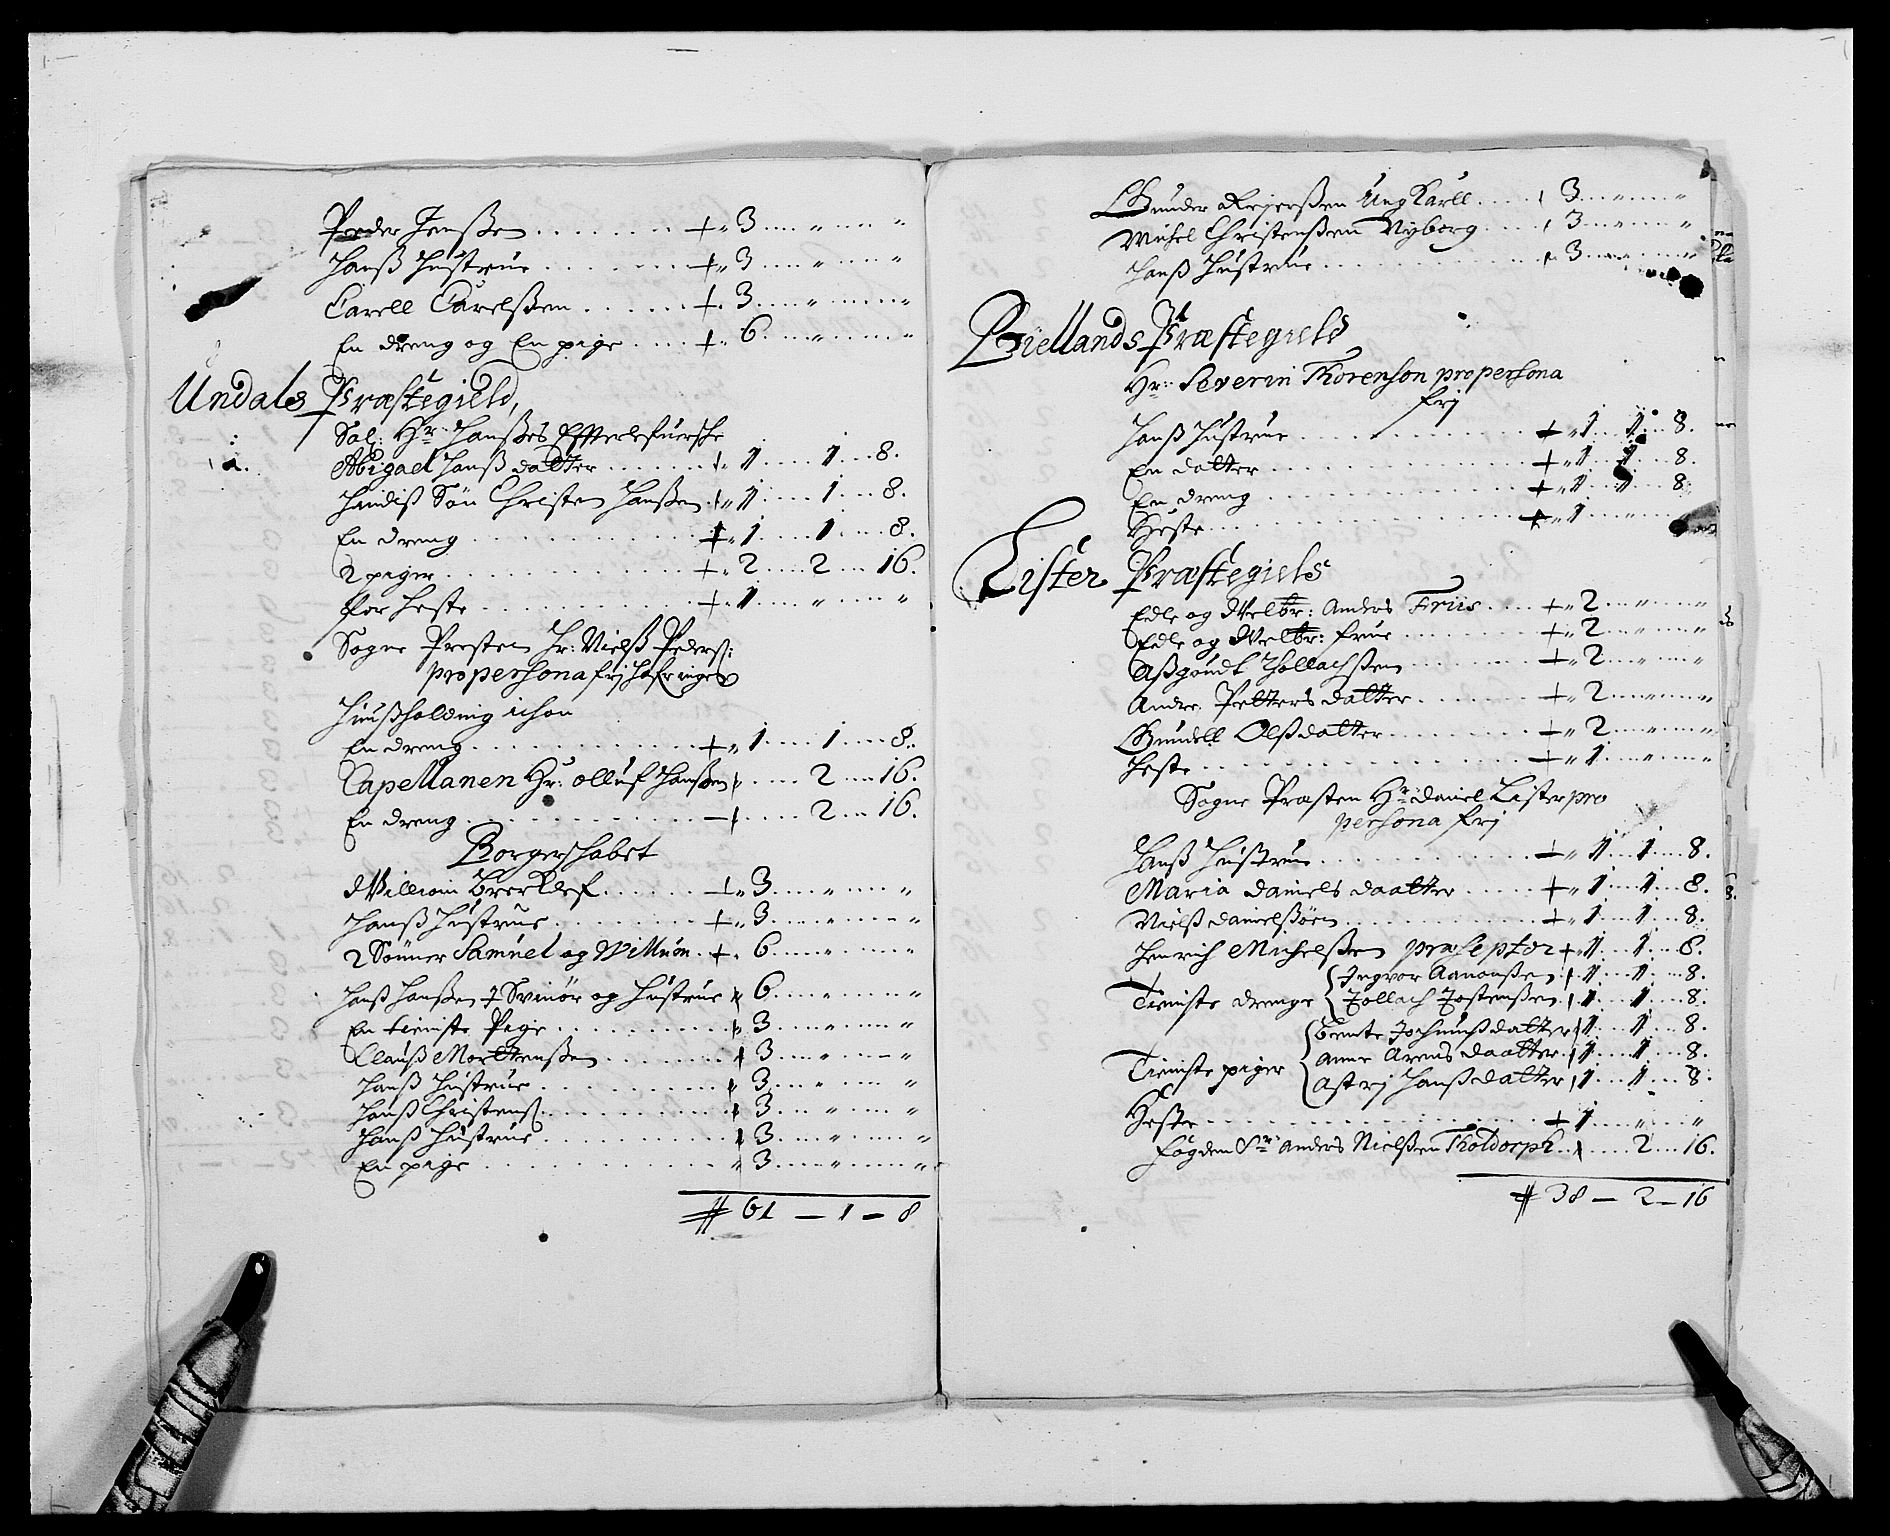 Peder Jenßen . . . + „ 3 . . „ . . „
Hanß Hustrue . . . + „ 3 . . „ . . „
Carell Carelßen . . . + „ 3 . . „ . . „
En dreng og En pige . . . + „ 6 . . „ . . „
Undals Præstegield,
Sal: Hr: Hanßes Effterlefuersche
Abigael Hanßdatter . . . + „ 1 . . 1 . . 8.
Hendis Søn Christen Hanßen . + „ 1 . . 1 . . 8.
En dreng . . . + „ 1 . . 1 . . 8.
2 piger . . . + „ 2 . . 2 . . 16.
for heste . . . + „ 1 . . „ . . „
Sogne Presten Hr: Nielß Peders:
pro persona frj
Huußholding
En dreng . . . + „ 1 . . 1 . . 8.
Capellanen Hr: Olluf Hanßen . . 2 . . 16.
En dreng . . . + . . 2 . . 16.
Borgerschabet
Willom . . . + „ 3 . . „ . . „
Hanß Hustrue . . . + „ 3 . . „ . . „
2 Sønner Samuel og Willum . + „ 6 . . „ . . „
Hanß Hanßen J Svinør og Hustrue „ 6 . . „ . . „
En tieniste Pige . . . „ 3 . . „ . . „
Clauß Mortenßen . . . „ 3 . . „ . . „
Hanß Hustrue . . . „ 3 . . „ . . „
Hanß Christenß: . . . „ 3 . . „ . . „
Hanß Hustrue . . . „ 3 . . „ . . „
En pige . . . „ 3 . . „ . . „
# 61 – 1 – 8
Gunder Ung Karll . . . „ 3 . . „ . . „
Michel Christenßen Nyborg . . . „ 3 . . „ . . „
Hanß Hustrue . . . „ 3 . . „ . . „
Biellands Præstegield
Hr: Severin Thorenson pro persona
frj
Hanß Hustrue . . . + „ 1 . . 1 . . 8.
En datter . . . + „ 1 . . 1 . . 8.
En dreng . . . + „ 1 . . 1 . . 8.
Heste . . . + „ 1 . . „
Lister Præstegield
Edle og Welbr: Anders Friis . . . + „ 2 . . „ . . „
Edle og Welbr: frue . . . + „ 2 . . „ . . „
Aßgoudt Tollachßen . . . + „ 2 . . „ . . „
Andre. Petters datter . . . + „ 2 . . „ . . „
Gundell Olßdatter . . . + „ 2 . . „ . . „
Heste . . . + „ 1 . . „ . . „
Sogne Præsten Hr: Daniel Lister pro
persona frj
Hanß Hustrue . . . + „ 1 . . 1 . . 8.
Maria Daniels daatter . . . + „ 1 . . 1 . . 8.
Nielß Danielßøn . . . + „ 1 . . 1 . . 8.
Henrich Michelßen præseptor + „ 1 . . 1 . . 8.
Tieniste drenge { Ingvor Aanonßen . „ 1 . . 1 . . 8.
Tollach Jostenßen . „ 1 . . 1 . . 8.
Tieniste piger { Bente Jochumßdatter „ 1 . . 1 . . 8.
Anne Arens daatter . „ 1 . . 1 . . 8.
Astrj Hanßdatter „ 1 . . 1 . . 8.
Heste . . . + 1 . . „ . . „
Fogden Sr: Anders Nielßen Tholdorph . . . 2 . . 16.
# 38 – 2 – 16